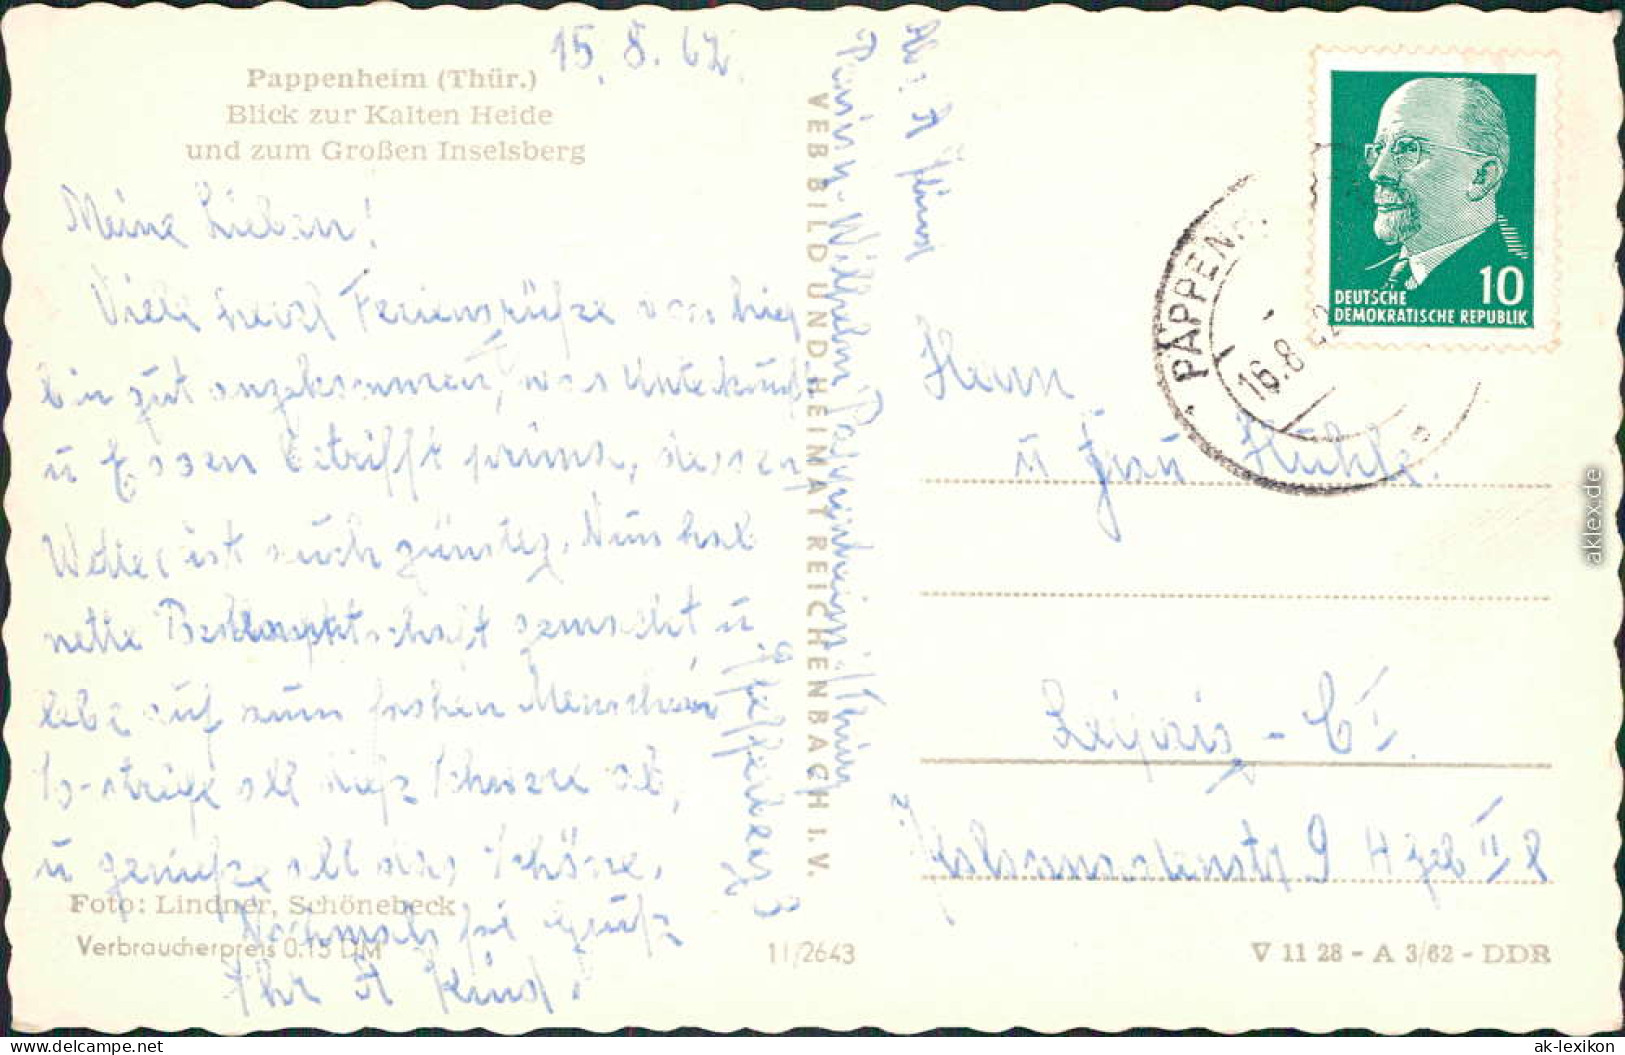 15.8.62
Pappenheim (Thür.)
Blick zur Kalten Heide
und zum Großen Inselsberg
Meine Lieben!
Viele herzl Feriengrüße von hier
bin gut angekommen, was Unterkunft
u Essen betrifft prima, dessen
Wetter ist auch günstig. Nun hab
nette Bekanntschaft gemacht u.
lebe auf zum frohen Menschen
so streife all dies Schwere ab,
u genieße all das Schöne.
Nochmals sie Grüßt
Ihr A Kind.
Foto: Lindner, Schönebeck
Verbraucherpreis 0.15 DM
11/2643
VEB BILD UND HEIMAT REICHENBACH I. V.
Abs. A Kind
Pappenheim / Thür
DEUTSCHE
DEMOKRATISCHE REPUBLIK
10
PAPPENH
16.8. 2
Herrn
u Frau
Leipzig - C I.
9 H Geb II
V 11 28 - A 3/62 - DDR
aklex.de
www.delcampe.net
ak-lexikon